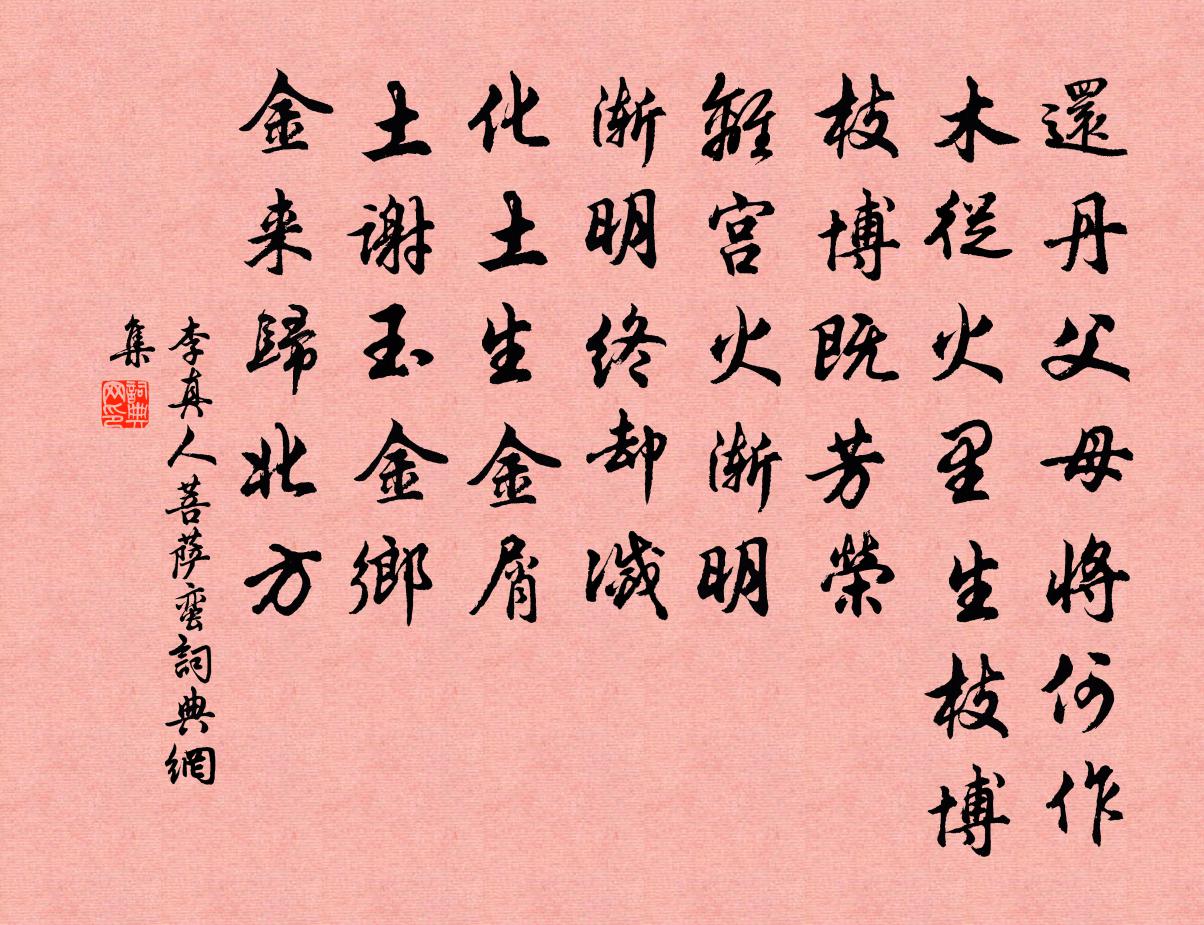 還丹父母將何作
木從火里生枝博
枝博既芳榮
離宮火漸明
漸明終却滅
化土生金屑
土謝玉金鄉
金来歸北方
李真人菩薩蛮詞典網
集
詞典網印